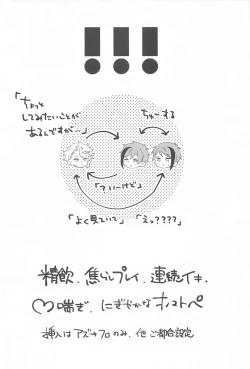 !!!
「ちょっと
してみたいことが
あるんですが…」
ちゅーする
「？いーけど」
「よく見ていて」
「えッ????」
精飲、焦らしプレイ、連続イキ、
♡喘ぎ、にぎやかなオノマトペ
挿入はアズ→フロのみ、他ご都合設定